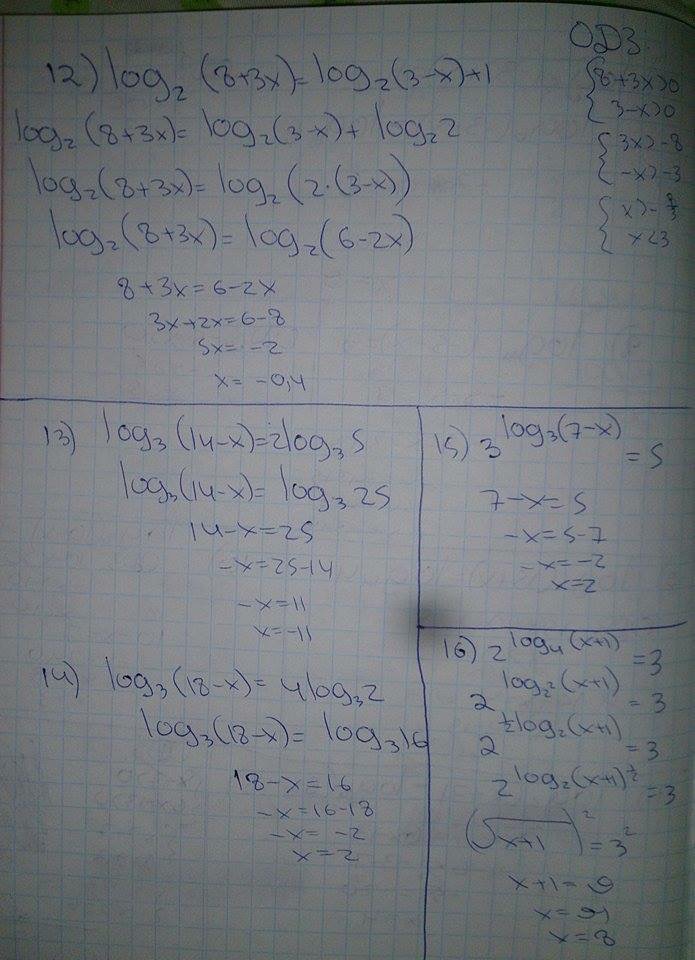 12) log₂ (8+3x)= log₂(3-x)+1
log₂(8+3x)= log₂(3-x)+ log₂2
log₂(8+3x)= log₂(2·(3-x))
log₂(8+3x)= log₂(6-2x)
8+3x=6-2x
3x+2x=6-8
5x= -2
x= -0,4
ОДЗ:
{8+3x>0
3-x>0
{3x>-8
-x>-3
{x>-8/3
x<3
13) log₃(14-x)=2log₃5
log₃(14-x)= log₃25
14-x=25
-x=25-14
-x=11
x=-11
14) log₃(18-x)= 4log₃2
log₃(18-x)= log₃16
18-x=16
-x=16-18
-x= -2
x=2
15) 3^log₃(7-x) = 5
7-x=5
-x=5-7
-x=-2
x=2
16) 2^log₄(x+1) =3
2^log₂²(x+1) = 3
2^½log₂(x+1) =3
2^log₂(x+1)^½ =3
(√x+1)² =3²
x+1=9
x=8